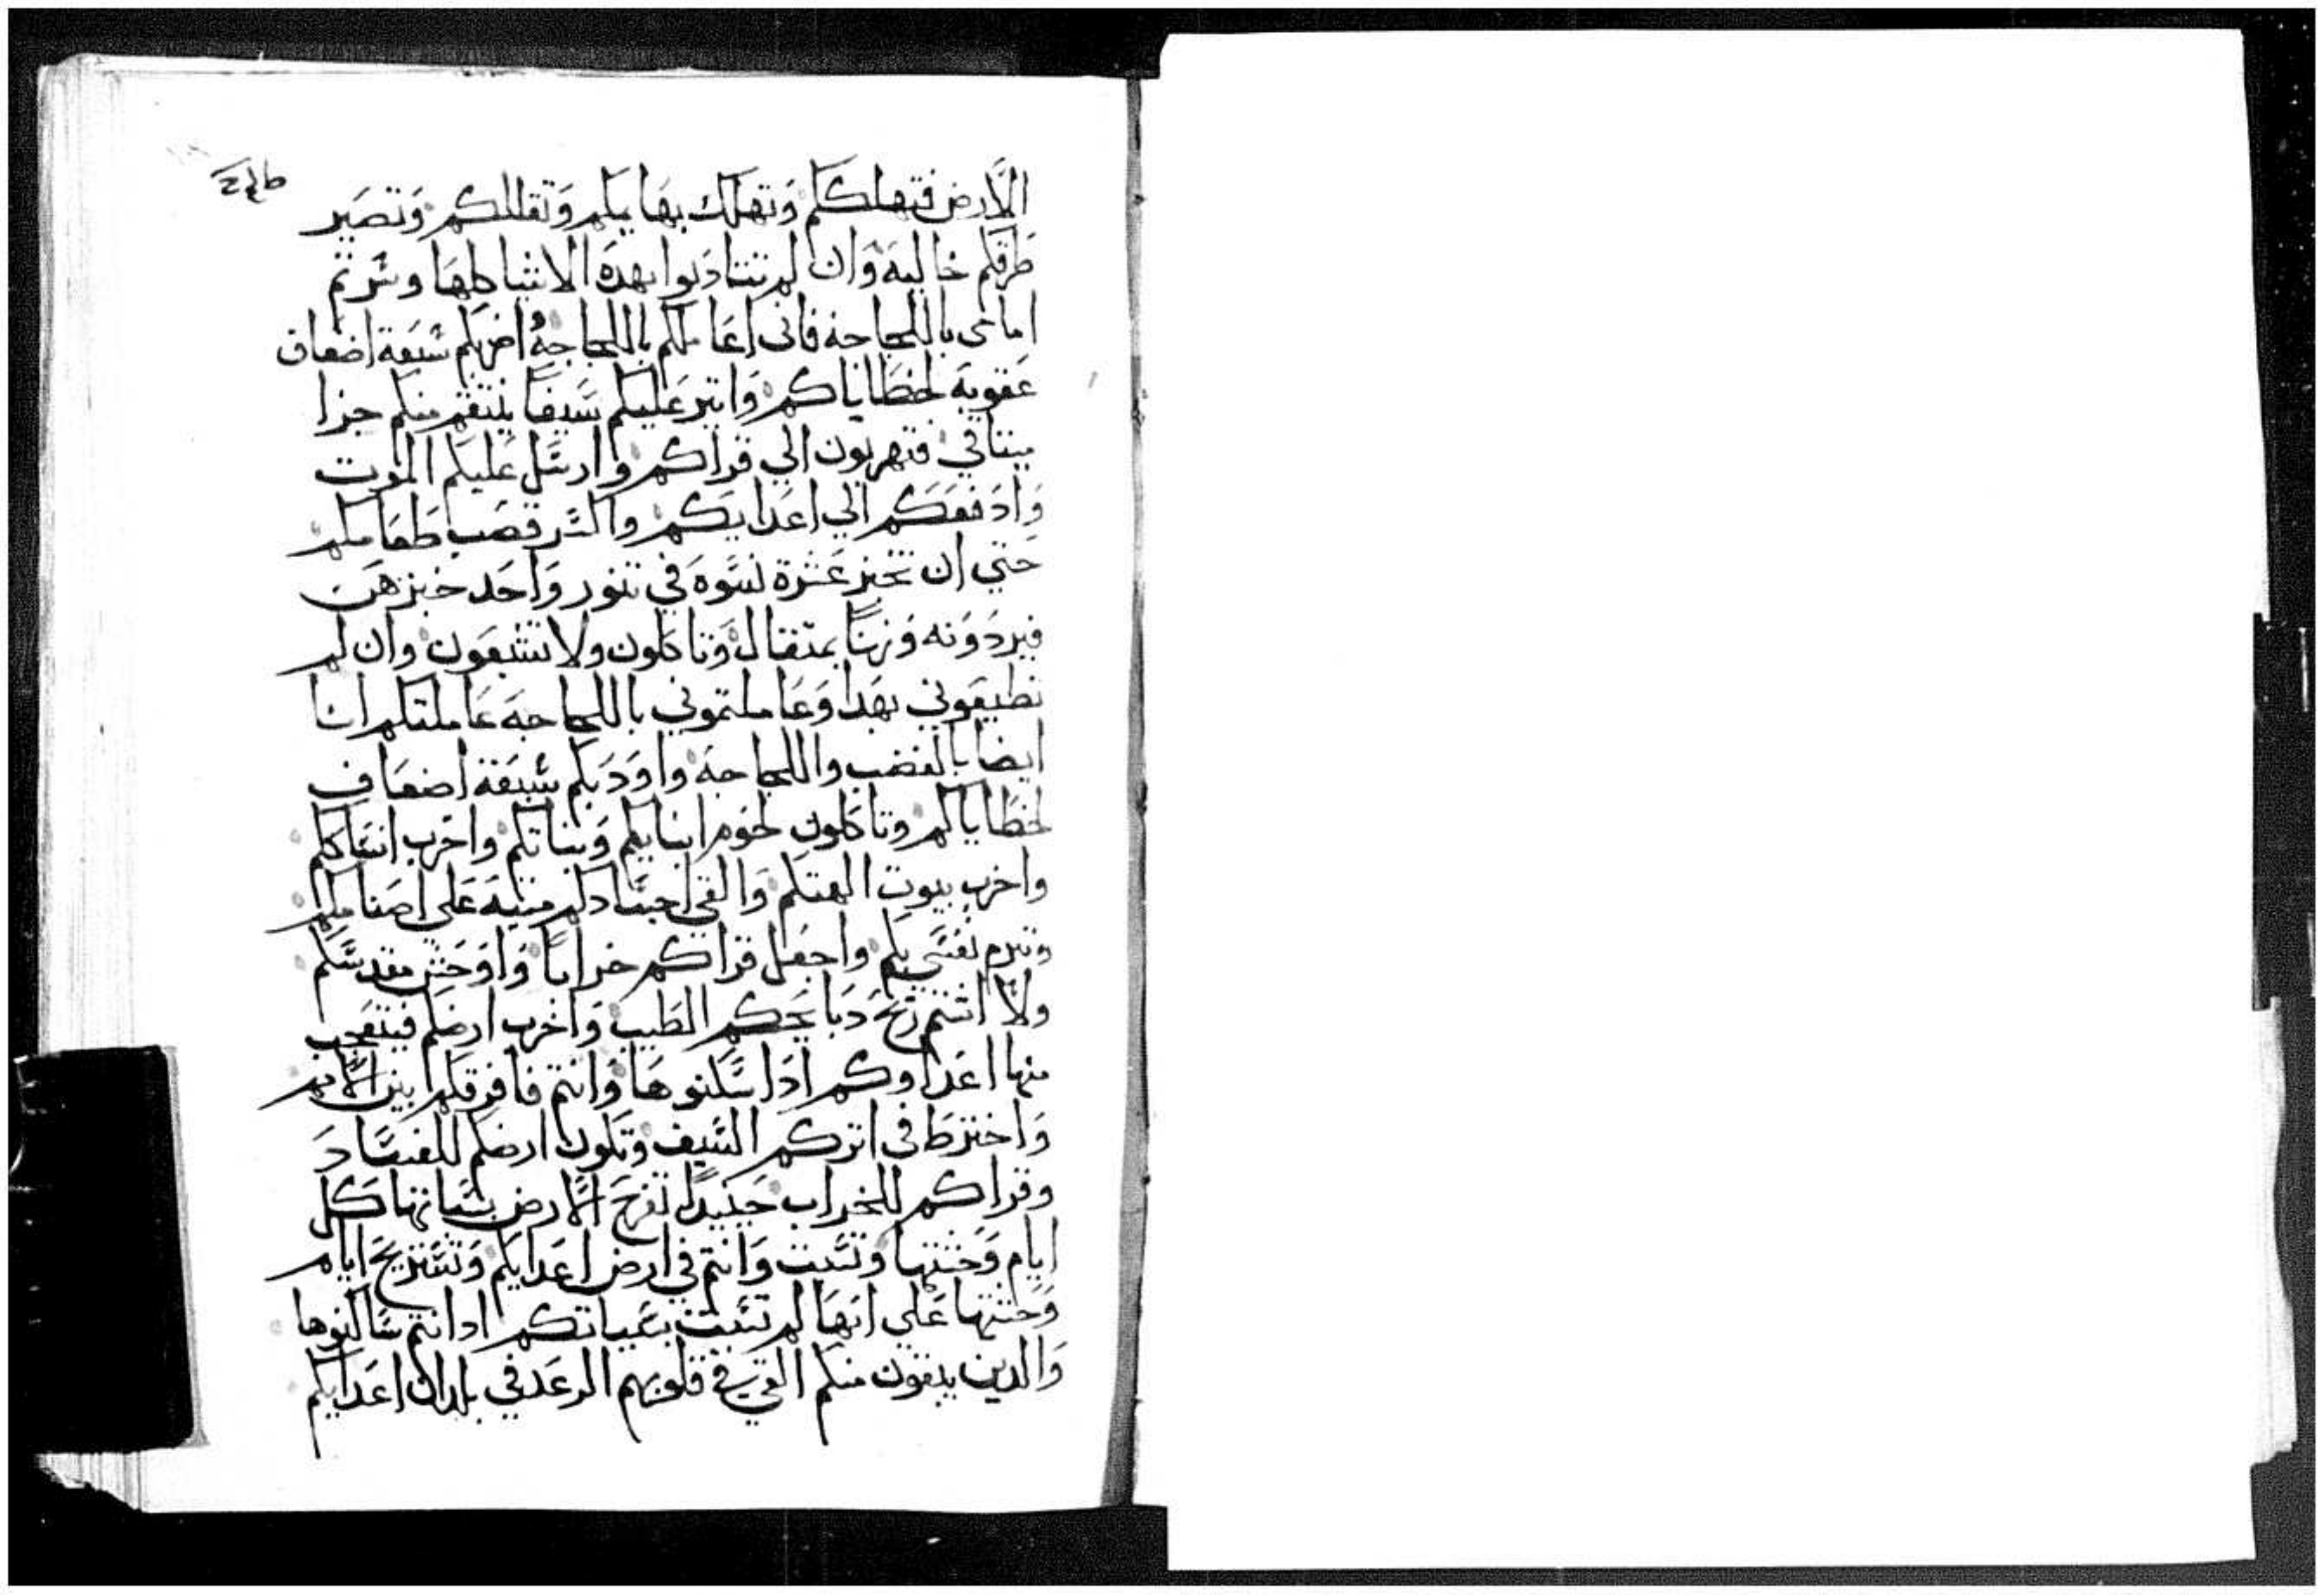 الأرض فتهلككم وتهلك بهايمكم وتقللكم وتصير
طرقكم خالية وان لم تتادبوا بهده الاشيا كلها وسرتم
امامي باللجاجة فاني اعاملكم باللجاجة اضربكم سبعة اضعاف
عقوبة لخطاياكم واتير عليكم سيفا ينتقم منكم جزا
ميتاقي فتهربون الي قراكم وارسل عليكم الموت
وادفعكم الي اعدايكم واكسر قصب طعامكم
حتي ان تخبز عشرة نسوه في تنور واحد خبزهن
فيردونه وزنا بمتقال وتاكلون ولا تشبعون وان لم
تطيعوني بهدا وعاملتموني باللجاجة عاملتكم انا
ايضا بالغضب واللجاجة واودبكم سبعة اضعاف
لخطاياكم وتاكلون لحوم ابنايكم وبناتكم واخرب انساككم
واخرب بيوت الهتكم والقي اجسادكم ميتة علي اصنامكم
وتبرم نفسي بكم واجعل قراكم خرابا واوحش مقدسكم
ولا اشتم ريح دبايحكم الطيب واخرب ارضكم فيتعجب
منها اعداوكم ادا سكنوها وانتم فافرقكم بين الأمم
واخترط في اتركم السيف وتكون ارضكم للفساد
وقراكم للخراب حينيدا تفرح الأرض بسباتها كل
ايام وحشتها وتسبت وانتم في ارض اعدايكم وتستريح ايام
وحشتها علي انها لم تسبت بسباتكم ادا انتم ساكنوها
والدين يبقون منكم القي في قلوبهم الرعد في بلدان اعدايكم